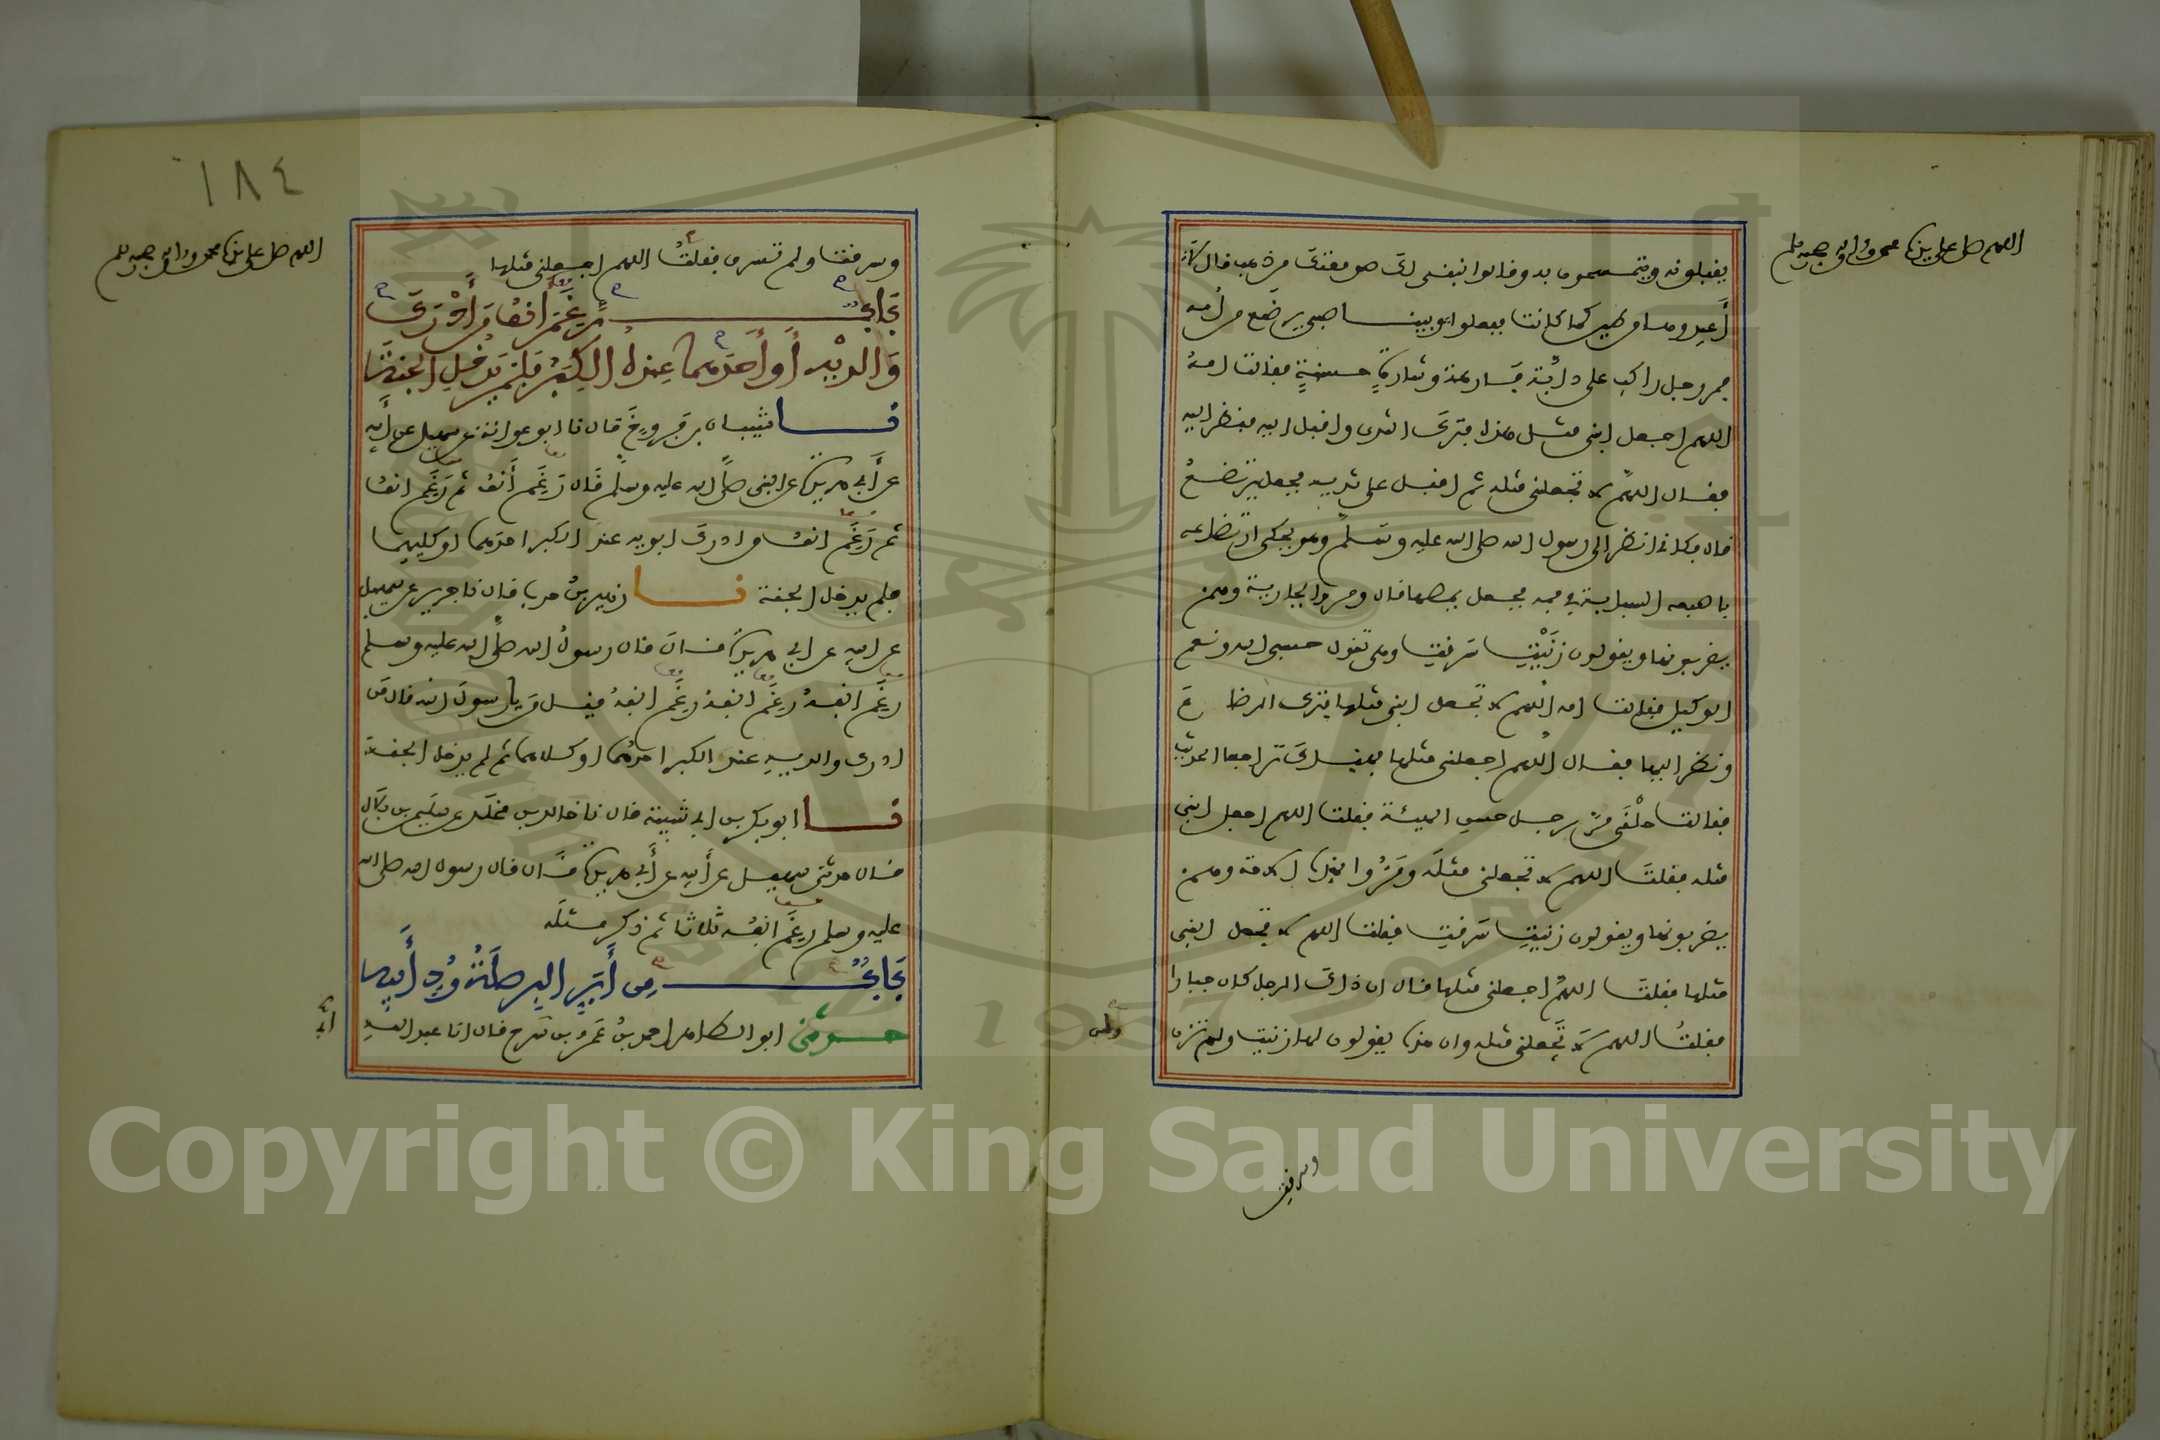 اللهم صل على سيدنا محمد وءاله وصحبه وسلم
يقبلونه ويتمسحون به وقالوا نبني لك صومعتك من ذهب قال لا
أعيدوها من طين كما كانت ففعلوا وبينا صبي يرضع من أمه
فمر رجل راكب على دابة فارهة وشارة حسنة فقالت امه
اللهم اجعل ابني مثل هذا فترك الثدي واقبل اليه فنظر اليه
فقال اللهم لا تجعلني مثله ثم اقبل على ثديه فجعل يرتضع
قال فكاني انظر الى رسول الله صلى الله عليه وسلم وهو يحكي ارتضاعه
باصبعه السبابة في فمه فجعل يمصها قال ومروا بجارية وهم
يضربونها ويقولون زنيت سرقت وهي تقول حسبي الله ونعم
الوكيل فقالت امه اللهم لا تجعل ابني مثلها فترك الرضاع
ونظر اليها فقال اللهم اجعلني مثلها فهناك تراجعا الحديث
فقالت حلقى مر رجل حسن الهيئة فقلت اللهم اجعل ابني
مثله فقلت اللهم لا تجعلني مثله ومروا بهذه الامة وهم
يضربونها ويقولون زنيت سرقت فقلت اللهم لا تجعل ابني
مثلها فقلت اللهم اجعلني مثلها قال ان ذاك الرجل كان جبارا
فقلت اللهم لا تجعلني مثله وان هذه يقولون لها زنيت ولم تزن
وسرقت
١٨٤
اللهم صل على سيدنا محمد وءاله وصحبه وسلم
وسرقت ولم تسرق فقلت اللهم اجعلني مثلها
باب رغم انف من أدرك
والديه أو أحدهما عند الكبر فلم يدخل الجنة
نا شيبان بن فروخ قال نا ابو عوانة عن سهيل عن أبيه
عن أبي هريرة عن النبي صلى الله عليه وسلم قال رغم أنف ثم رغم انف
ثم رغم انف من ادرك ابويه عند الكبر احدهما او كليهما
فلم يدخل الجنة نا زهير بن حرب قال نا جرير عن سهيل
عن ابيه عن ابي هريرة قال قال رسول الله صلى الله عليه وسلم
رغم انفه رغم انفه رغم انفه قيل من يا رسول الله قال من
ادرك والديه عند الكبر احدهما او كلاهما ثم لم يدخل الجنة
نا ابو بكر بن ابي شيبة قال نا خالد بن مخلد عن سليمن بن بلال
قال حدثني سهيل عن أبيه عن أبي هريرة قال قال رسول الله صلى الله
عليه وسلم رغم انفه ثلاثا ثم ذكر مثله
باب من أبر البر صلة ود أبيه
حدثني ابو الطاهر احمد بن عمرو بن سرح قال انا عبد الله
Copyright © King Saud University
1957